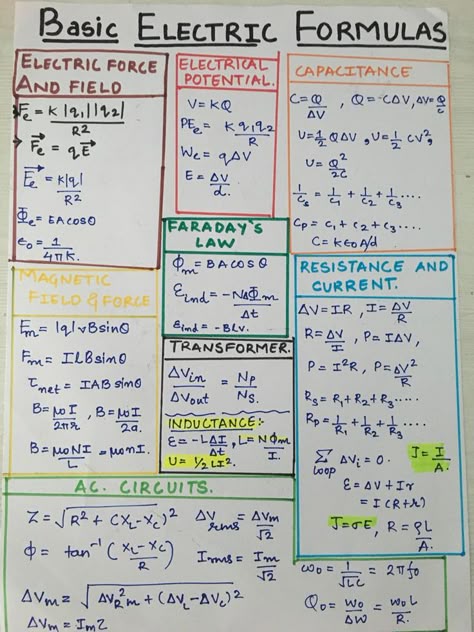 Basic ELECTRIC FORMULAS
ELECTRIC FORCE
AND FIELD
Fe = K|q1||q2| / R²
→ Fe = qE
E = K|q| / R²
Φe = EA cosθ
ε0 = 1 / 4πK.
ELECTRICAL
POTENTIAL.
V = KQ
PEe = K q1q2 / R
We = qΔV
E = ΔV / d.
CAPACITANCE
C = Q / ΔV , Q = CΔV, ΔV = Q / C
U = 1/2 QΔV, U = 1/2 CV²,
U = Q² / 2C
1/Cs = 1/C1 + 1/C2 + 1/C3 ....
Cp = C1 + C2 + C3 ....
C = KE0 A/d
FARADAY'S
LAW
Φm = BA cosθ
εind = -NΔΦm / Δt
εind = -BLV.
MAGNETIC
FIELD & FORCE
Fm = |q|vB sinθ
Fm = ILB sinθ
τnet = IAB sinθ
B = μ0I / 2πr , B = μ0I / 2a.
B = μ0NI / L = μ0nI.
TRANSFORMER.
ΔVin / ΔVout = Np / Ns.
INDUCTANCE:
ε = -LΔI / Δt, L = NΦm / I.
U = 1/2 LI².
RESISTANCE AND
CURRENT.
ΔV = IR, I = ΔV / R
R = ΔV / I , P = IΔV,
P = I²R, P = ΔV² / R
Rs = R1 + R2 + R3 .....
Rp = 1/R1 + 1/R2 + 1/R3 ....
Σ loop ΔVi = 0. J = I / A.
ε = ΔV + Ir
= I (R+r)
J = σE, R = ρL / A.
AC. CIRCUITS.
Z = √R² + (XL-XC)² ΔVrms = ΔVm / √2
Φ = tan⁻¹ (XL-XC / R) Irms = Im / √2
ΔVm = √ΔVR²m + (ΔVL-ΔVC)²
ΔVm = ImZ
ω0 = 1 / √LC = 2πf0
Q0 = ω0 / ΔW = ω0L / R